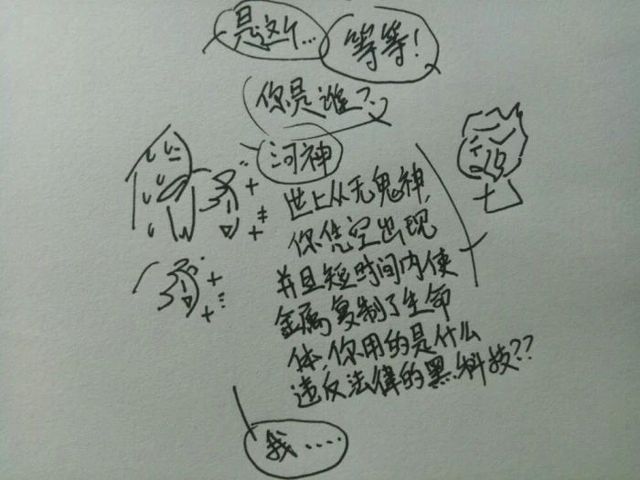 是这个...
等等!
你是谁?
河神
世上从无鬼神,
你凭空出现
并且短时间内使
金属复制了生命
体,你用的是什么
违反法律的黑科技??
我......